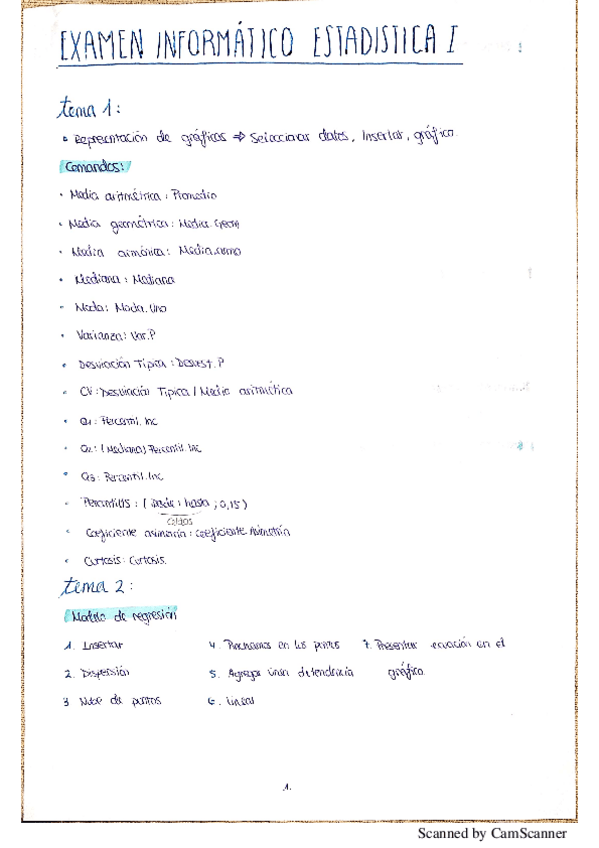 EXAMEN INFORMÁTICO ESTADISTICA I
tema 1:
Representación de gráficos ⇒ Seleccionar datos, Insertar, gráfico.
Comandos:
· Media aritmétrica: Promedio
· Media geométrica: Media.Geom
· Media armónica: Media.armo
· Mediana: Mediana
· Moda: Moda.Uno
· Varianza: Var.P
· Desviación Típica: Desvest.P
· CV: Desviación Típica / Media aritmética
· Q1: Percentil.Inc
· Q2: (Mediana) Percentil.Inc
· Q3: Percentil.Inc
· Percentiles: (desde: hasta ; 0,15)
celdas
· Coeficiente asimetría: Coeficiente.Asimetría
· Curtosis: Curtosis.
tema 2:
Modelo de regresión
1. Insertar
2. Dispersión
3 Nube de puntos
4. Pinchamos en los puntos
5. Agregar línea de tendencia
6. Líneas
7. Presentar ecuación en el
gráfico.
1.
Scanned by CamScanner